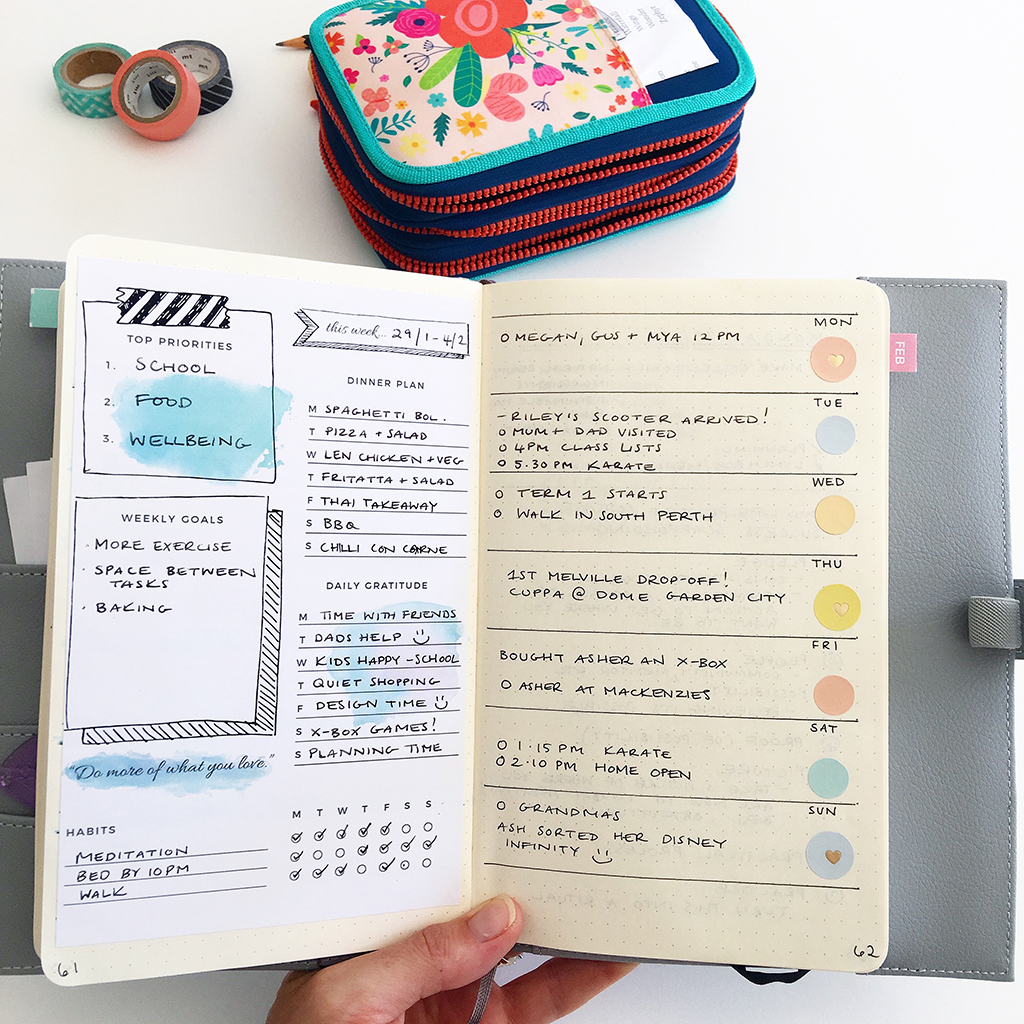 mt
TOP PRIORITIES
1. SCHOOL
2. FOOD
3. WELLBEING
this week... 29/1-4/2
DINNER PLAN
M SPAGHETTI BOL.
T PIZZA + SALAD
W LEN CHICKEN + VEG
T FRITATTA + SALAD
F THAI TAKEAWAY
S BBQ
S CHILLI CON CARNE
WEEKLY GOALS
· MORE EXERCISE
· SPACE BETWEEN
TASKS
· BAKING
DAILY GRATITUDE
M TIME WITH FRIENDS
T DADS HELP
W KIDS HAPPY -SCHOOL
T QUIET SHOPPING
F DESIGN TIME
S X-BOX GAMES!
S PLANNING TIME
"Do more of what you love."
HABITS
MEDITATION
BED BY 10PM
WALK
M T W T F S S
61
MON
O MEGAN, GUS + MYA 12 PM
FEB
TUE
- RILEY'S SCOOTER ARRIVED!
O MUM + DAD VISITED
O 4PM CLASS LISTS
O 5.30 PM KARATE
WED
O TERM 1 STARTS
O WALK IN SOUTH PERTH
THU
1ST MELVILLE DROP-OFF!
CUPPA @ DOME GARDEN CITY
FRI
BOUGHT ASHER AN X-BOX
O ASHER AT MACKENZIES
SAT
O 1.15 PM KARATE
O 2.10 PM HOME OPEN
SUN
O GRANDMAS
ASH SORTED HER DISNEY
INFINITY
62